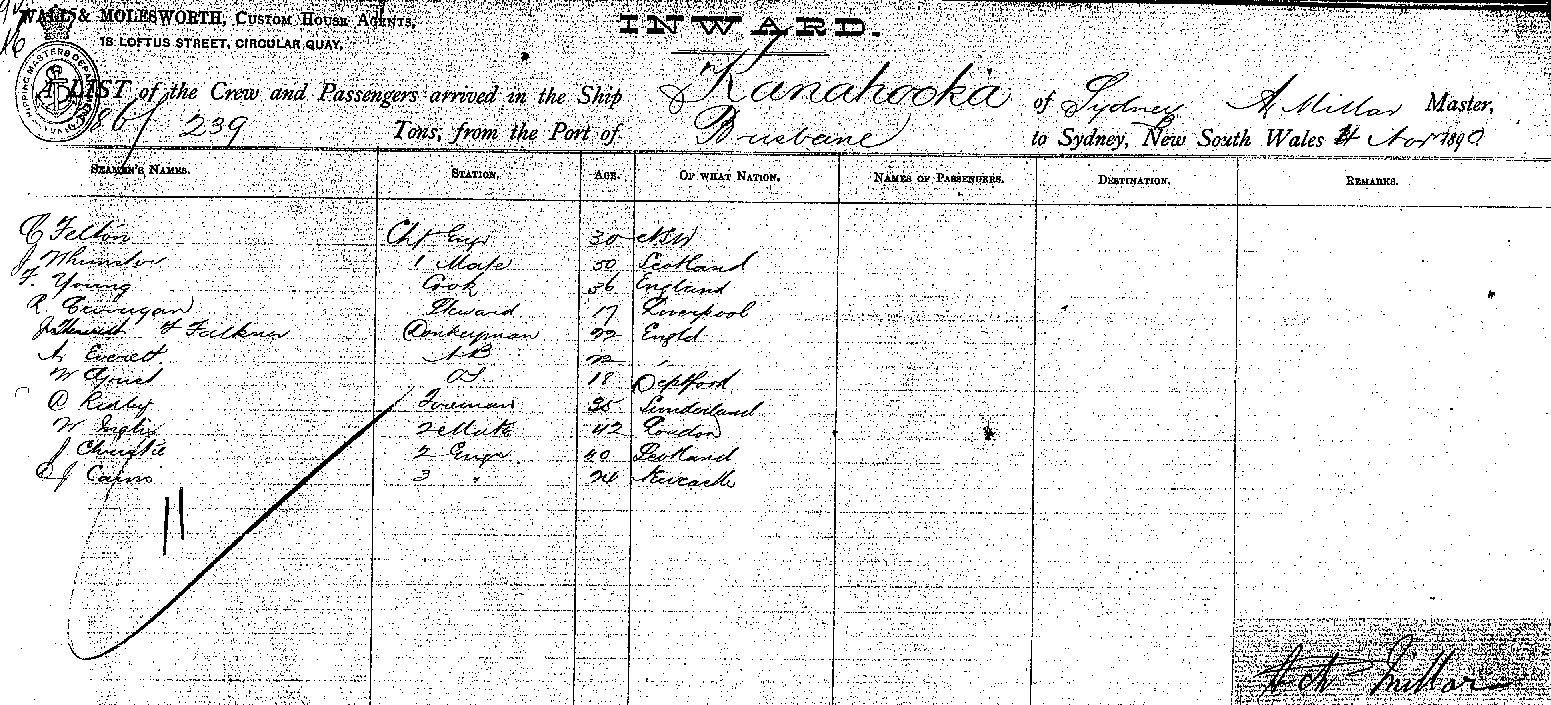 WALLS & MOLESWORTH, CUSTOM HOUSE AGENTS,
18 LOFTUS STREET, CIRCULAR QUAY,
INWARD.
A LIST of the Crew and Passengers arrived in the Ship Kanahooka of Sydney A Millar Master,
239 Tons, from the Port of Brisbane to Sydney, New South Wales 4 Nov 1890
SEAMEN'S NAMES. STATION. AGE. OF WHAT NATION. NAMES OF PASSENGERS. DESTINATION. REMARKS.
C Felton Chf Engr 30 NSW
J 1 Mate 50 Scotland
F. Young Cook 56 England
R Steward 17 Liverpool
F Falkner Donkeyman 22 Engld
A Everett AB 22 "
W OS 18 Deptford
C Ridley Fireman 35 Sunderland
W Inglis 2 Mate 42 London
J Christie 2 Engr 40 Scotland
C J Cairns 3 " 24 Newcastle
11
Millar